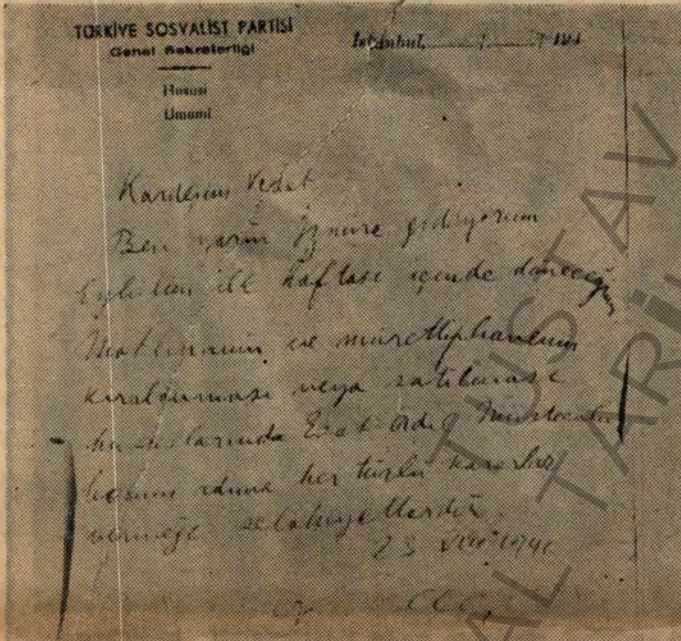 TÜRKİYE SOSYALİST PARTİSİ
Genel Sekreterliği
İstanbul, / / 194
Hususi
Umumi
Kardeşim Vedat
Ben yarın İzmire gidiyorum
Eylülün ilk haftası içinde döneceğim
Matbaanın ve mürettiphanenin
kiralanması veya satılması
hususlarında Esat Adil
benim adıma her türlü kararlar
vermeğe selâhiyetlerdir
23 VIII 194
TÜSTAV
AL TARİH